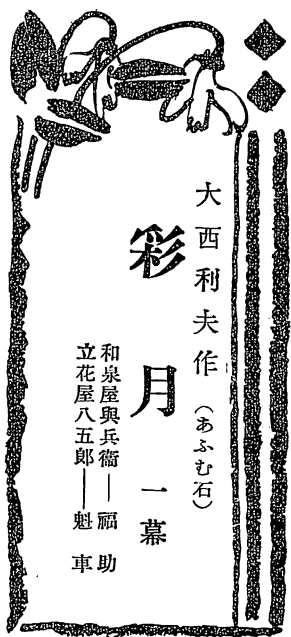 大西利夫作（あふむ石）
彩月一幕
和泉屋與兵衞――福助
立花屋八五郎――魁車